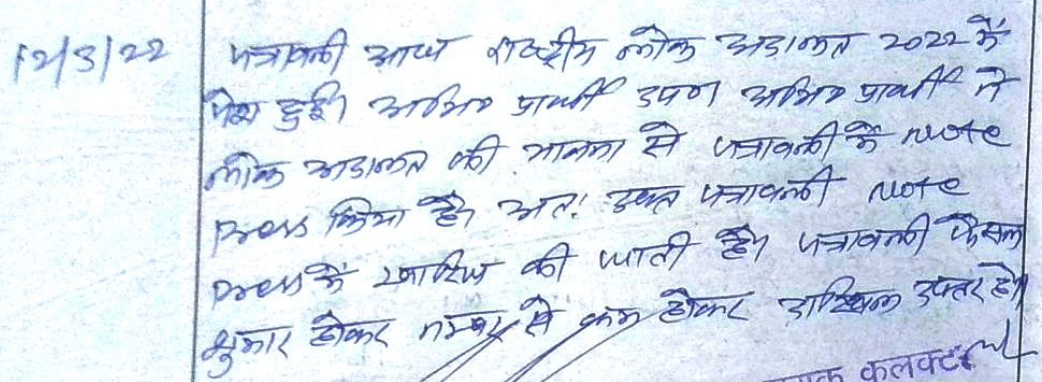 12/3/22 पत्रावली आज राष्ट्रीय लोक अदालत 2022 में
पेश हुई। अभि० प्रार्थी उप०। अभि० प्रार्थी ने
लोक अदालत की भावना से पत्रावली में Note
Press किया है। अतः उक्त पत्रावली Note
Press में खारिज की जाती है। पत्रावली फैसल
शुमार होकर नम्बर से कम होकर दाखिल दफ्तर हो।
कलक्टर